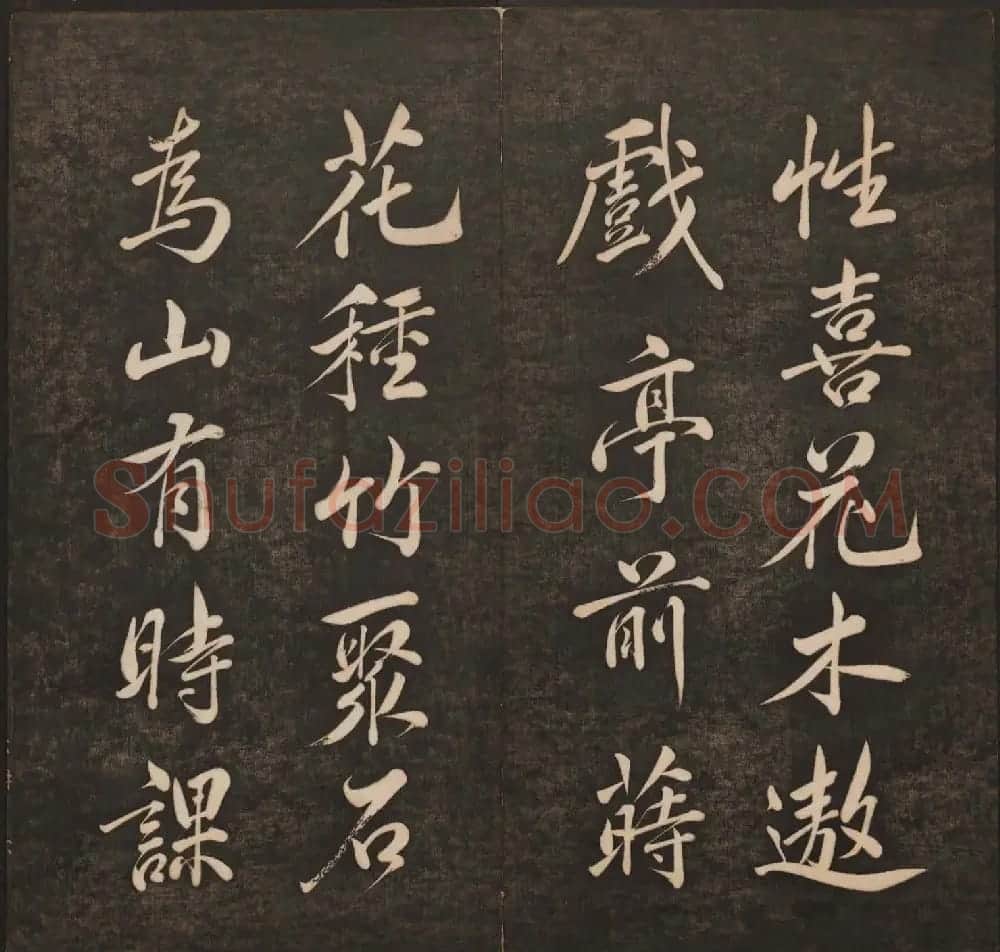 性喜花木遨
戲亭前蒔
花種竹聚石
為山有時課
Shufaziliao.COM